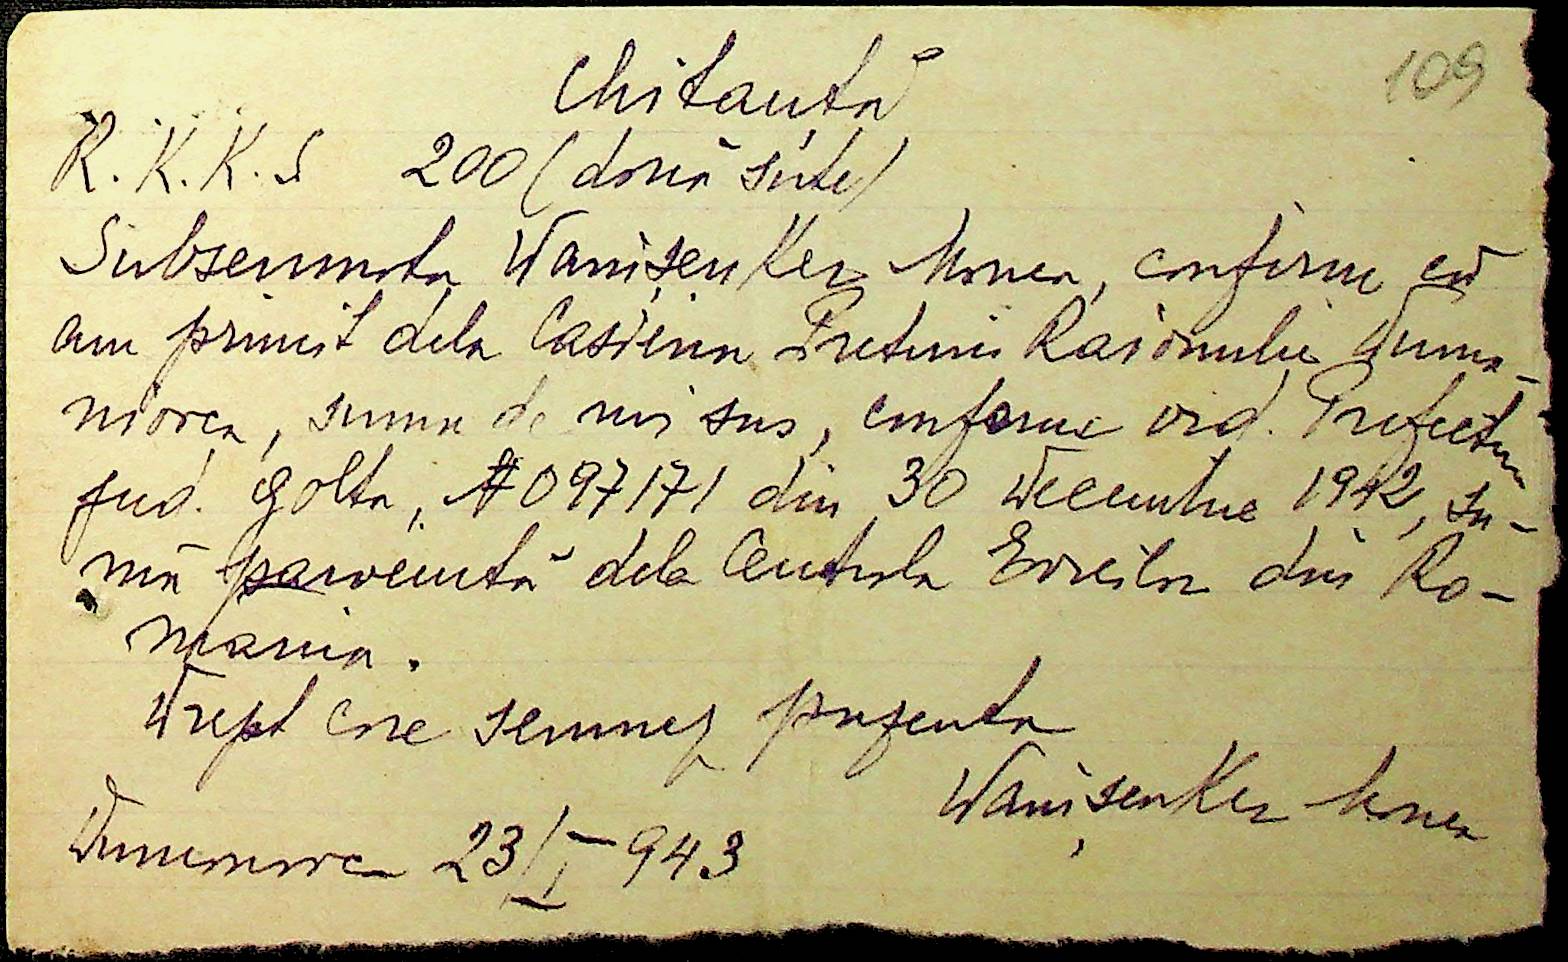 Chitanță
109
R.K.K.S 200 (două sute)
Subsemnata Wanișenker Monea, confirm că
am primit dela Casieria Preturii Raionului Duma-
niovca, suma de mai sus, conform ord. Prefectura
jud. Golta, #097171 din 30 Decembrie 1942, su-
mă parvenită dela Centrala Evreilor din Ro-
mania.
Drept care semnez prezenta
Wanișenker Monea
Dumanovca 23/I-943